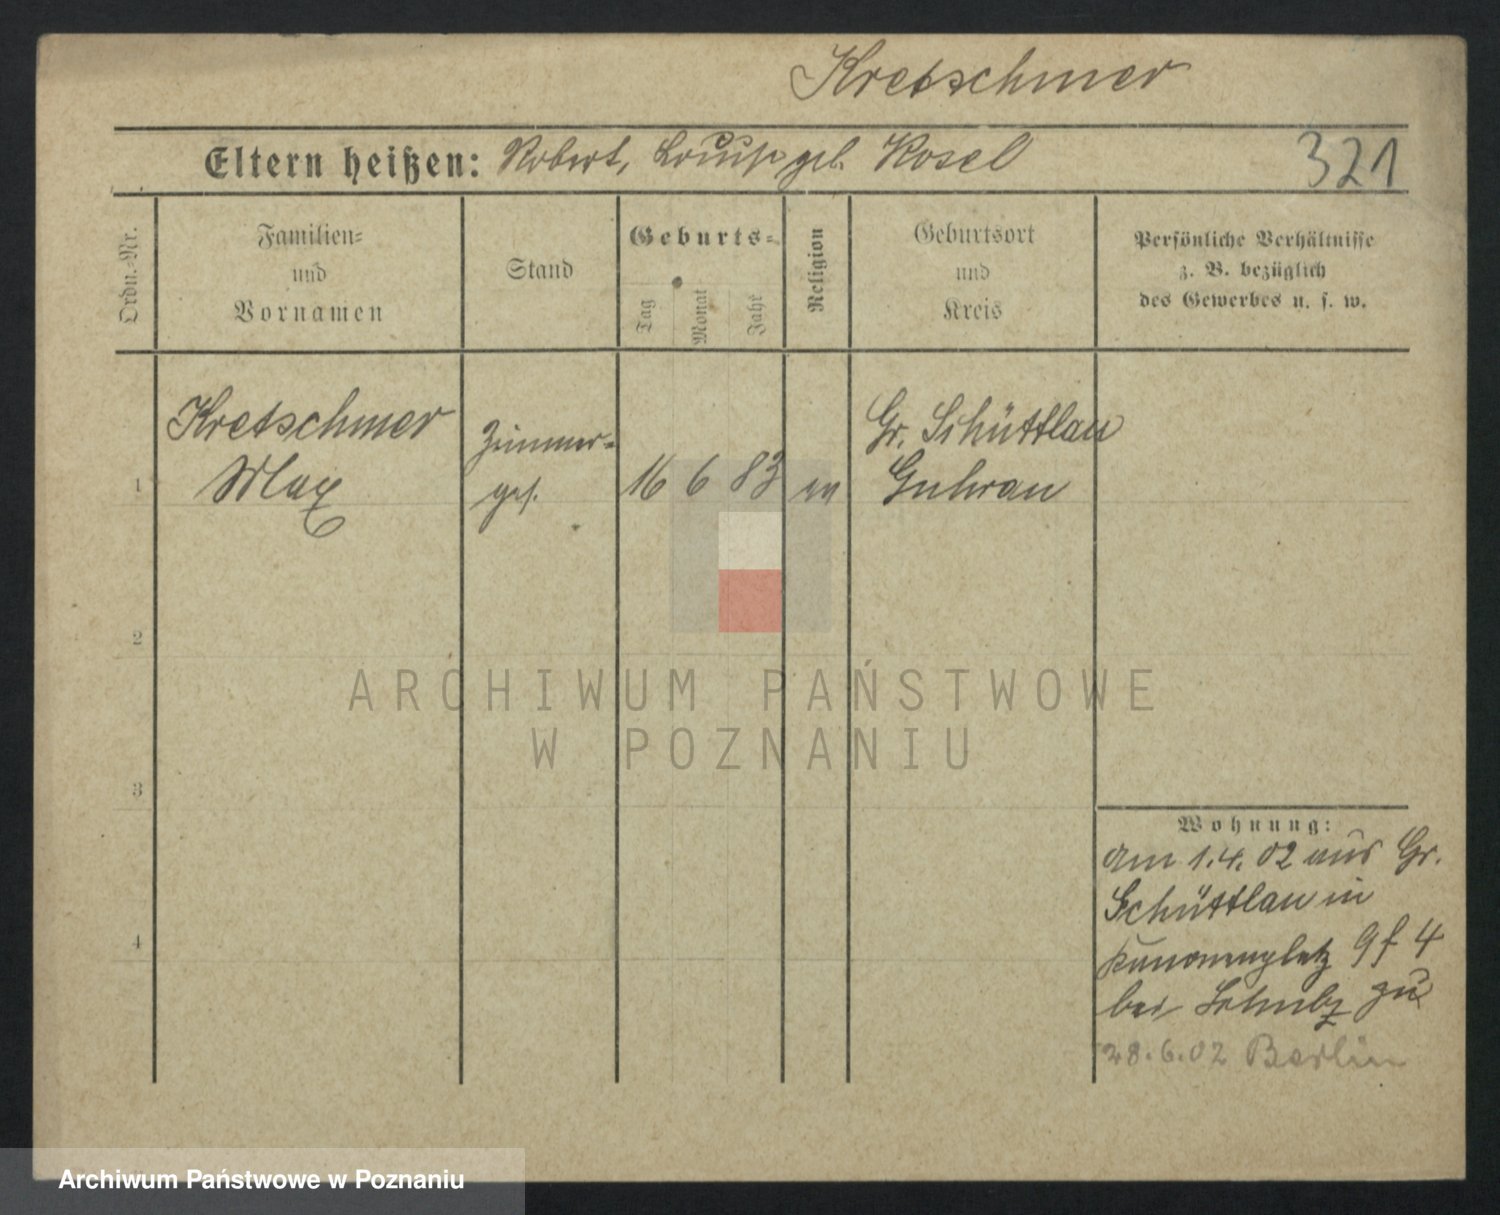 Kretschmer
Eltern heißen: Robert, Louise geb. Kosel
321
Ordn.-Nr.
Familien-
und
Vornamen
Stand
Geburts-
Tag
Monat
Jahr
Religion
Geburtsort
und
Kreis
Persönliche Verhältnisse
z. B. bezüglich
des Gewerbes u. s. w.
Kretschmer
Max
Zimmer-
ges.
1
16 6 83
ev
Gr. Schüttlau
Guhrau
2
3
4
Wohnung:
am 1.4.02 aus Gr.
Schüttlau in
Kanonenplatz 9 f 4
bei Schulz zu
28.6.02 Berlin
ARCHIWUM PAŃSTWOWE
W POZNANIU
Archiwum Państwowe w Poznaniu